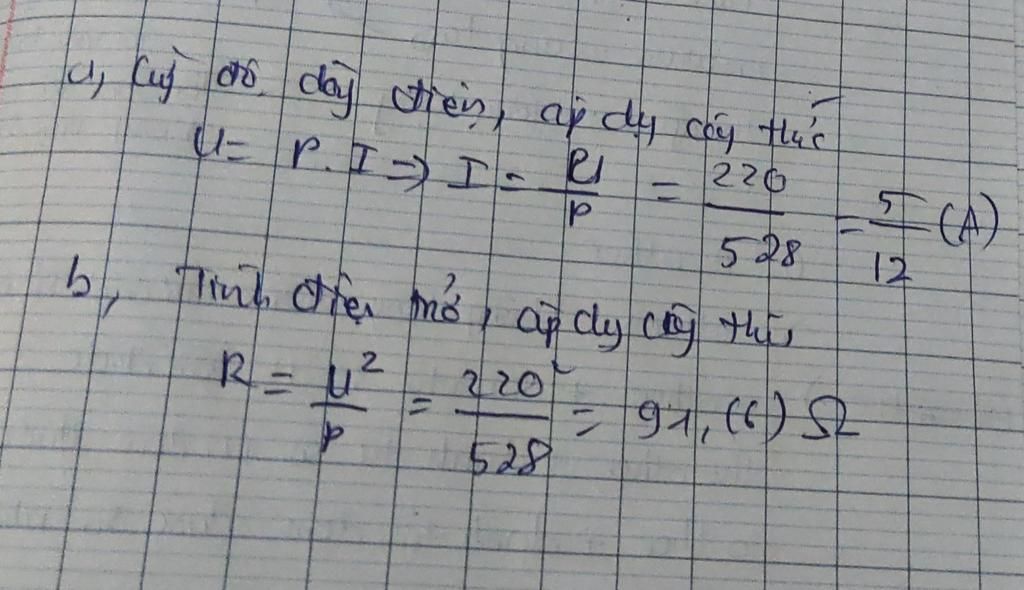 a, Cg độ dòg điện, áp dụg côg thức
U = P.I => I = U/P = 220/528 = 5/12 (A)
b, Tính điện trở, áp dụg côg thức
R = U²/P = 220²/528 = 91,(6) Ω